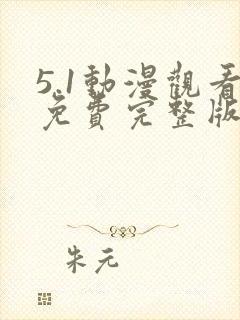 5.1動漫觀看
免費完整版
朱元